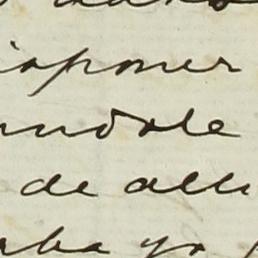 isponer
andole
de alli
aba yo